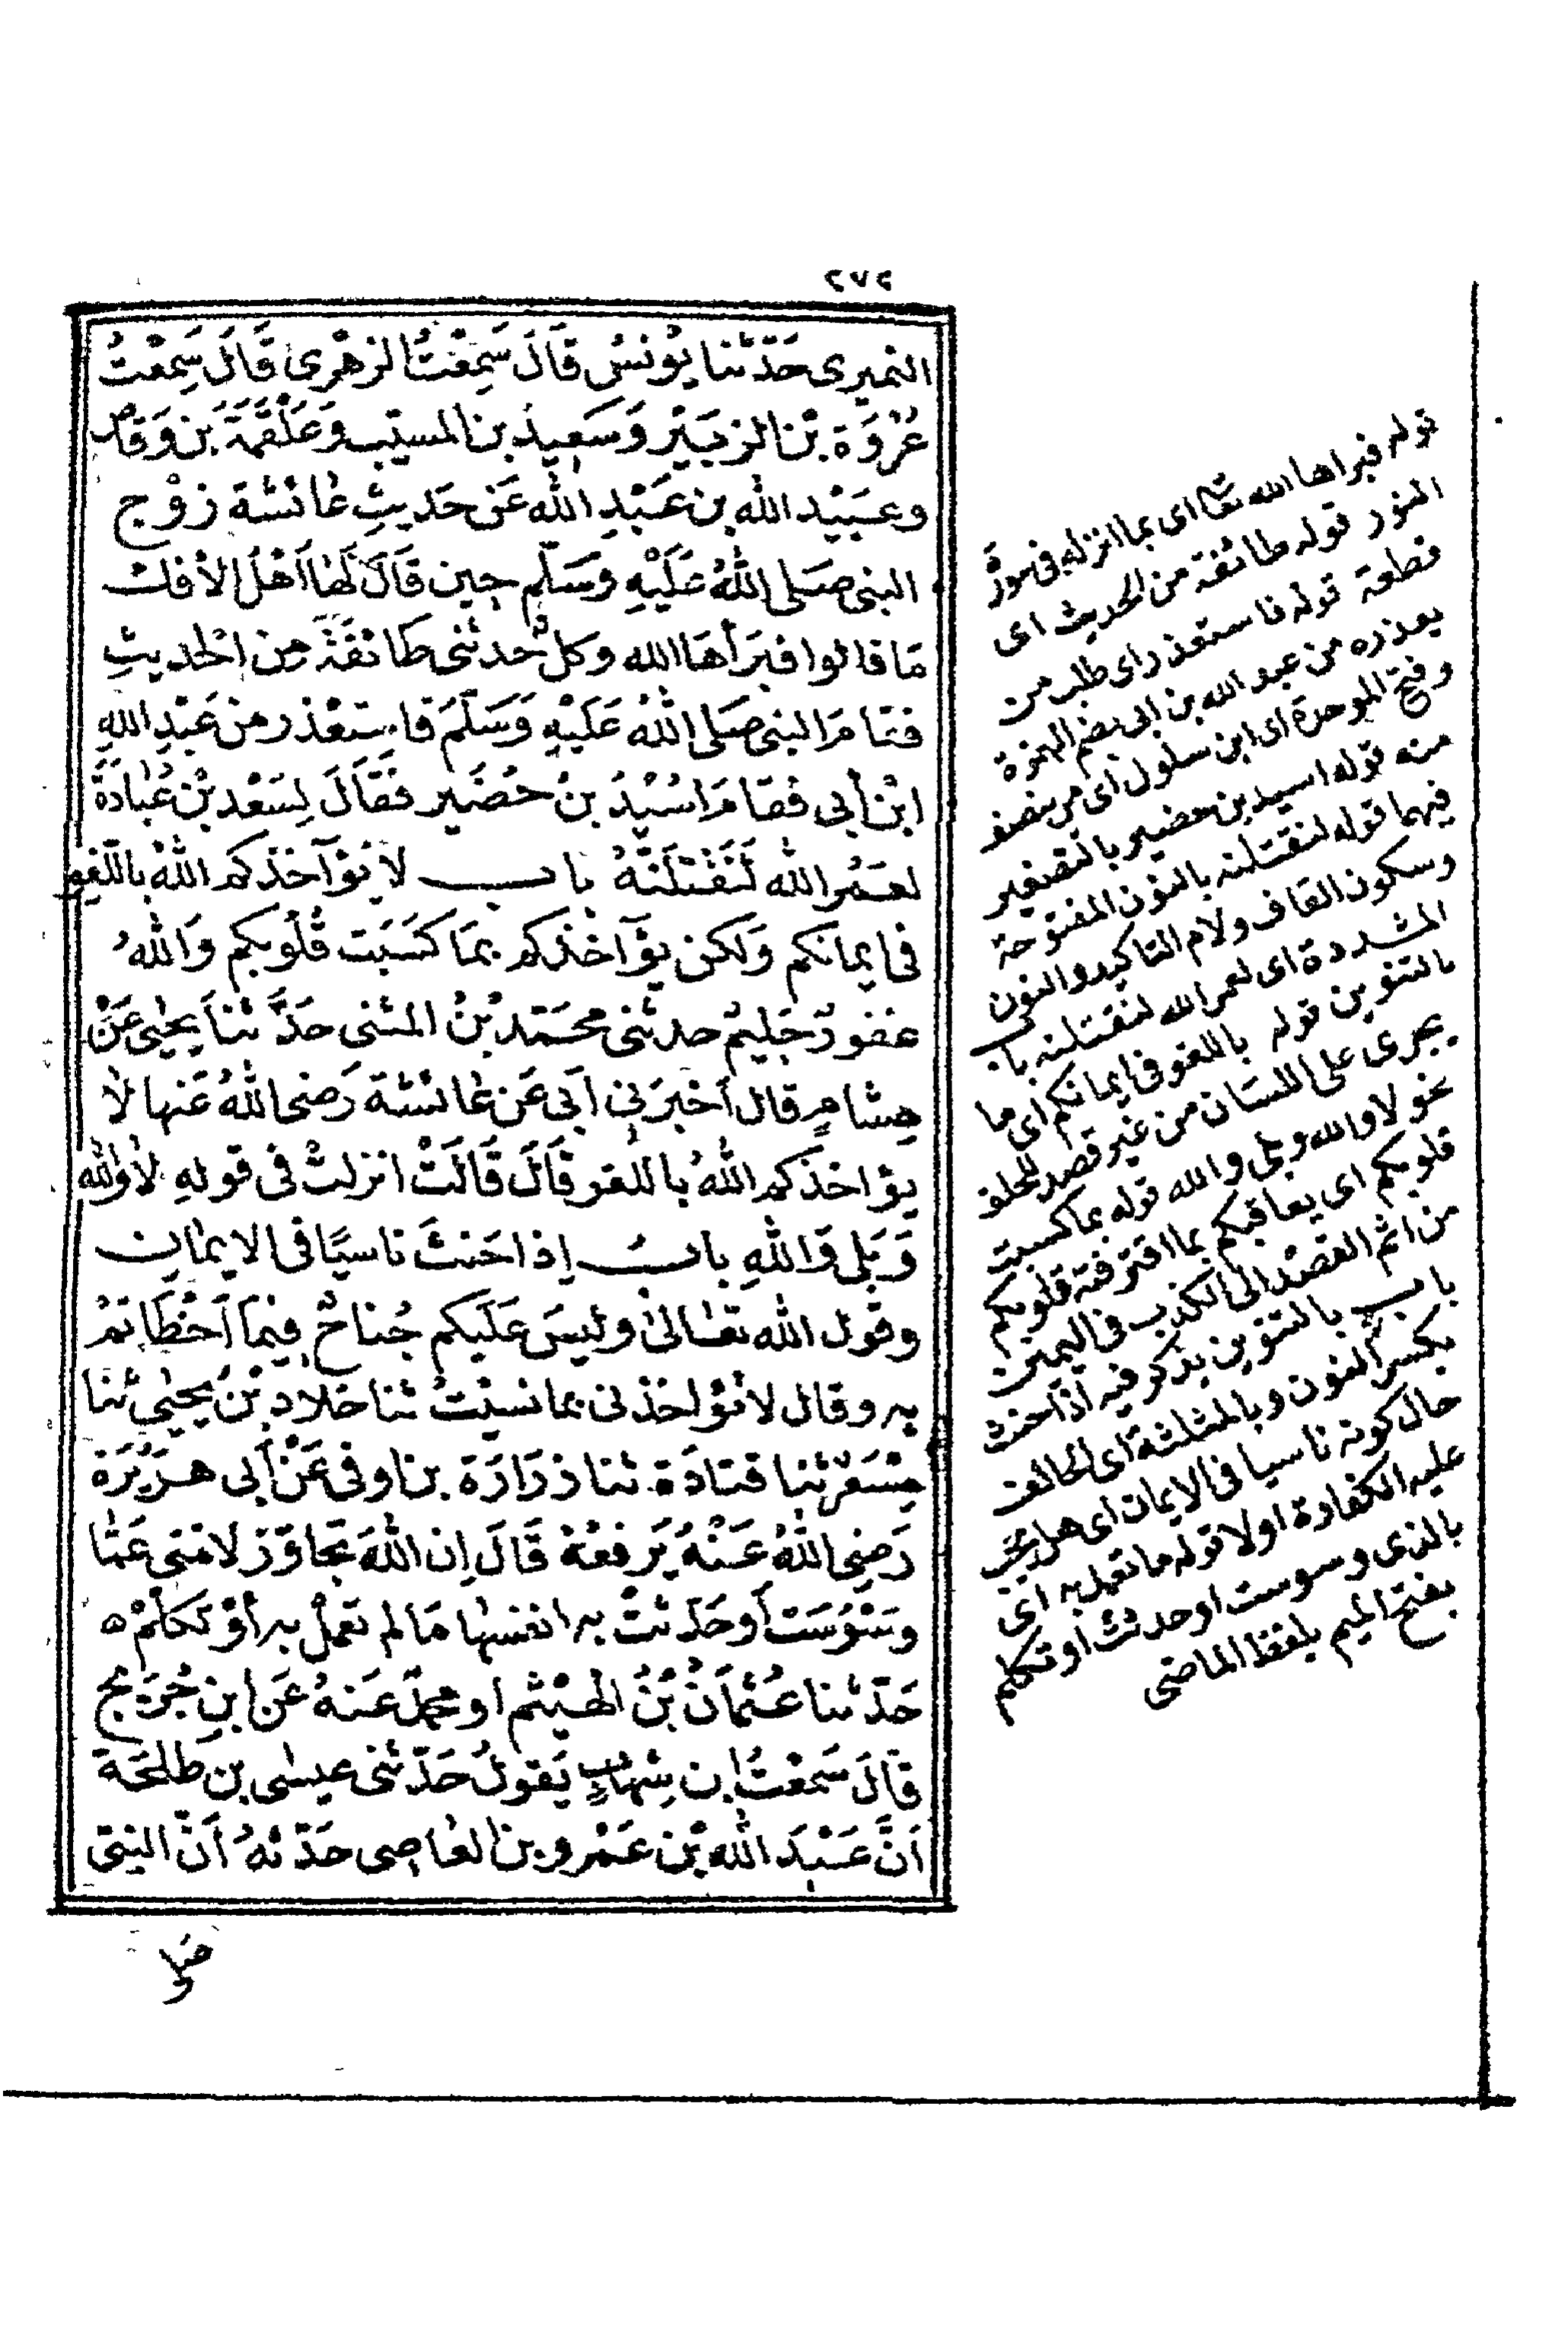 ٢٧٢
النميرى حَدّثنا يُونسُ قَالَ سَمِعْتُ الزهْرى قَالَ سَمِعْتُ
عُرْوَة بْن الزبَيْر وَسَعيد بن المسيّب وَعَلْقَمَةَ بَن وَقاص
وعبَيْد الله بن عَبْدِ الله عَن حَديثِ عائشة زوْج
النبى صَلى اللهُ عَلَيْهِ وَسَلّم حِين قَالَ لَهَا أهْلُ الأفك
مَا قالوا فبَرأهَا الله وكلٌ حدثنى طَائفَةً مِن الحديثِ
فقامَ النبى صَلى اللهُ عَلَيْهِ وَسَلّمَ فاستعْذر من عَبْدِ اللهِ
ابْن أبى فقامَ اسُيْدُ بنُ حُضَير فَقَالَ لِسَعْد بْن عُبَادَةَ
لعَمْر الله لَنَقْتلَنّهُ باب لا يُؤآخذكم اللهُ باللّغو
فى ايمانكم وَلكن يؤآخذكم بمَا كسَبَت قُلُوبكم وَاللهُ
غفورٌ حَليمٌ حدثنى محَمّد بْنُ المثنى حَدَّثنا يحيى عَنْ
هِشامٍ قال أخبَرَنِى أبى عَن عائشة رَضى اللهُ عَنها لا
يؤاخذكم اللهُ باللغو قَالَ قَالَتْ انزلتْ فى قولهِ لا والله
وَبَلى وَاللهِ بابُ إذا حَنثَ ناسيًا فى الايمان
وقول الله تعَالىٰ وليسَ عَلَيكم جُناحٌ فِيمَا أخْطَاتمْ
به وقال لا تؤاخذنى بما نسيْتُ ثنا خلاد بْنُ يحيٰى ثنا
مِسْعَرٌ ثنا قتادَة ثنا زرَارَة بن اوفى عَنْ أبى هرَيْرَة
رَضِى اللهُ عَنْهُ يَرفعُهُ قَالَ إن اللهَ تجاوَزَ لامتى عَمّا
وسَوَسَت أوحَدّثتْ به انفسَها مَا لم تعمَلْ به أوْ تكلمْ ه
حَدّثنا عُثمانُ بْنُ الهيْثم او محمّدٌ عَنهُ عَن ابنِ جُرَيج
قالَ سَمعْتُ ابن شِهَابٍ يَقولُ حَدّثنى عيسى بن طلحَة
أنَّ عَبْدَ الله بْن عَمْرو بن العاصِى حَدّثهُ أنّ النبىّ
قوله فبراها الله تعا اى بما انزله فى سورة
النور قوله طائفة من الحديث اى
قطعة قوله فاستعذر اى طلب من
يعذره من عبد الله بن ابى بضم الهمزة
وفتح الموحدة اى ابن سلول اى من ينصف
منه قوله اسيد بن حضير بالتصغير
فيهما قوله لنقتلنه بالنون المفتوحة
وسكون القاف ولام التاكيد والنون
المشددة اى لعمر الله لنقتلنه باب
بالتنوين قوله باللغو فى ايمانكم اى ما
يجرى على اللسان من غير قصد للحلف
نحو لا والله وبلى والله قوله بما كسبت
قلوبكم اى يعاقبكم بما اقترفته قلوبكم
من اثم القصد الى الكذب فى اليمين
باب بالتنوين يذكر فيه اذا حنث
بكسر النون وبالمثلثة اى الحالف
حال كونه ناسيا فى الايمان اى هل يجب
عليه الكفارة او لا قوله ما تعمل به اى
بالذى وسوست او حدثت او تكلم
بفتح الميم بلفظ الماضى